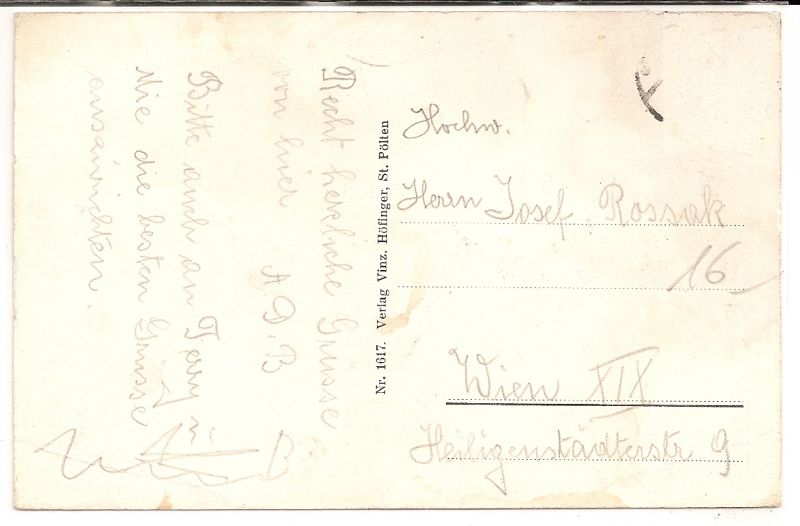 Recht herzliche Grüsse
von hier
A. D. B
Bitte auch an Ferry u
Mie die besten Grüsse
auszurichten.
Nr. 1617. Verlag Vinz. Höfinger, St. Pölten
Hochw.
Herrn Josef Rossak
16
Wien XIX
Heiligenstädterstr 9